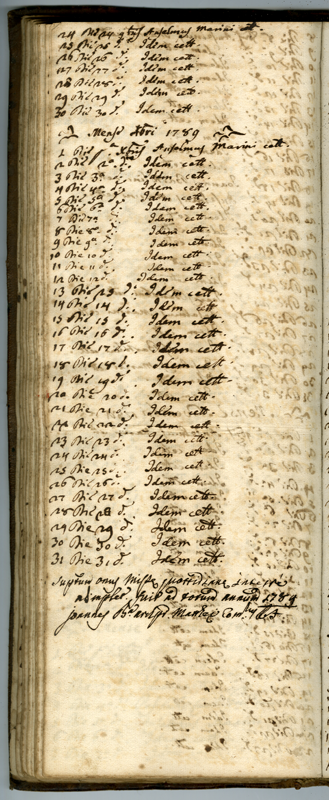 24 Die 24 9bris Anselmus Marini cett.
25 Die 25 d. Idem cett
26 Die 26 d. Idem cett
27 Die 27 d. Idem cett
28 Die 28 d. Idem cett.
29 Die 29 d. Idem cett.
30 Die 30 d. Idem cett.
Mense Xbri 1789
1 Die Xbris Anselmus Marini cett.
2 Die 2a d. Idem cett.
3 Die 3a d. Idem cett.
4 Die 4a d. Idem cett.
5 Die 5a d. Idem cett.
6 Die 6a d. Idem cett.
7 Die 7a d. Idem cett.
8 Die 8a d. Idem cett.
9 Die 9a d. Idem cett.
10 Die 10 d. Idem cett
11 Die 11 d. Idem cett.
12 Die 12 d. Idem cett.
13 Die 13 d. Idem cett.
14 Die 14 d. Idem cett.
15 Die 15 d. Idem cett.
16 Die 16 d. Idem cett.
17 Die 17 d. Idem cett.
18 Die 18 d. Idem cett
19 Die 19 d. Idem cett.
20 Die 20 d. Idem cett.
21 Die 21 d. Idem cett.
22 Die 22 d. Idem cett.
23 Die 23 d. Idem cett.
24 Die 24 d. Idem cett.
25 Die 25 d. Idem cett.
26 Die 26 d. Idem cett.
27 Die 27 d. Idem cett.
28 Die 28 d. Idem cett.
29 Die 29 d. Idem cett.
30 Die 30 d. Idem cett.
31 Die 31 d. Idem cett.
onus quottidiane
fuit ad totum annum 1789
Joannes